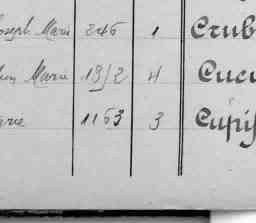 Joseph Marie 246 1 Crub
Marie 1972 4 Cucu
arie 1163 3 Cupif